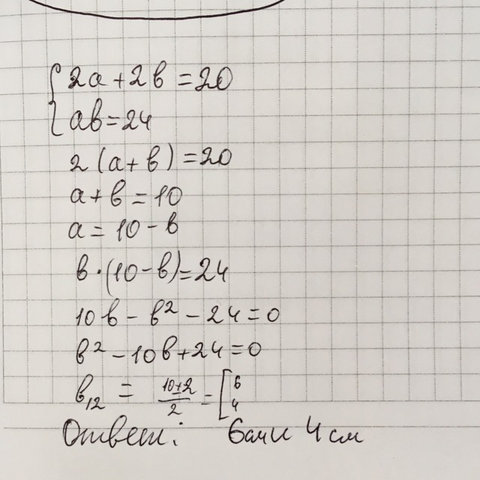 {2a + 2b = 20
ab = 24
2(a + b) = 20
a + b = 10
a = 10 - b
b·(10 - b) = 24
10b - b² - 24 = 0
b² - 10b + 24 = 0
b₁₂ = (10±2)/2 = [6 4
Ответ: 6 см и 4 см